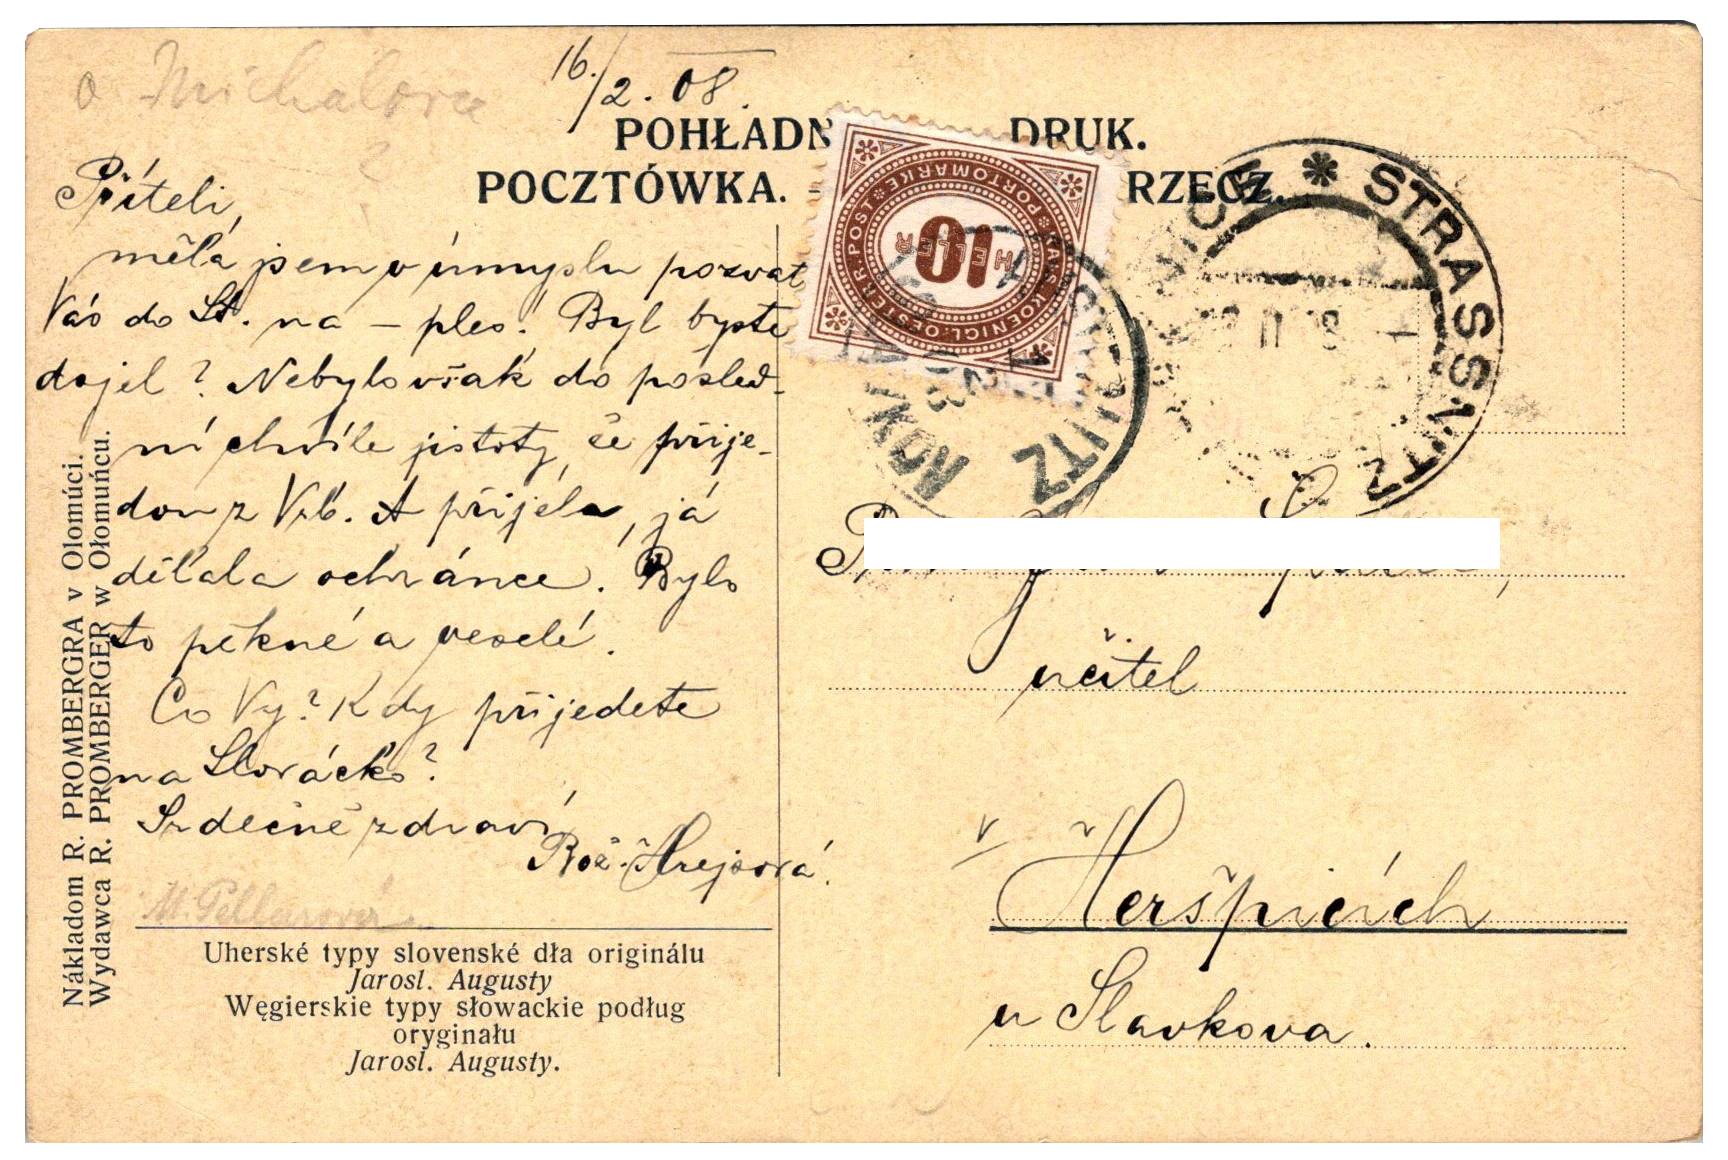 16./2. 08.
POHŁADN DRUK.
POCZTÓWKA. - RZECZ.
Příteli,
měla jsem v úmyslu pozvat
Vás do St. na – ples. Byl byste
dojel? Nebylo však do posled-
ní chvíle jistoty, že přije-
dou z Vrb. A přijela, já
dělala ochránce. Bylo
to pěkné a veselé.
Co Vy? Kdy přijedete
na Slovácko?
Srdečně zdraví
Bož. Hrejsová.
M. Pellarova
Uherské typy slovenské dła originálu
Jarosl. Augusty
Węgierskie typy słowackie podług
oryginału
Jarosl. Augusty.
Nákladom R. PROMBERGRA v Olomúci.
Wydawca R. PROMBERGER w Ołomuńcu.
KAIS. KOENIGL. OESTERR. POST
PORTOMARKE
10
HELLER
STRASSNITZ
učitel
v Heršpicích
u Slavkova.